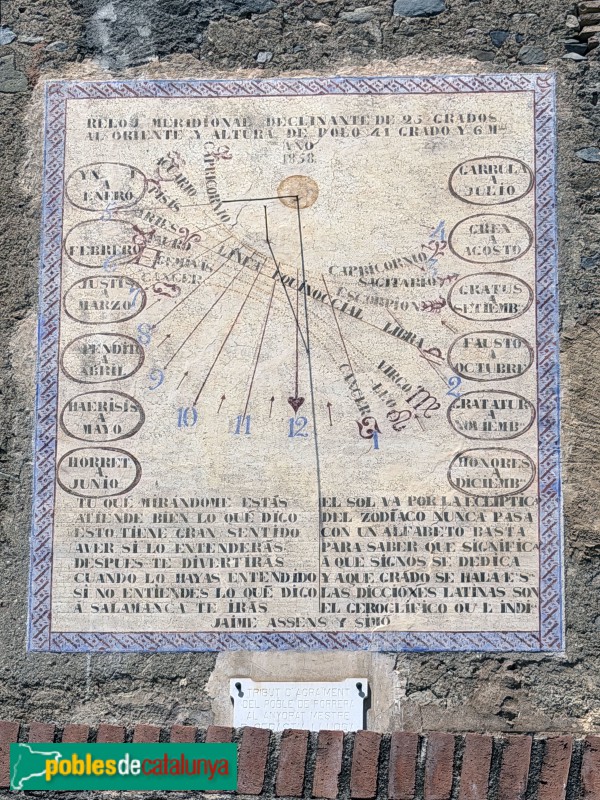 RELOJ MERIDIONAL DECLINANTE DE 25 GRADOS
AL ORIENTE Y ALTURA DE POLO 41 GRADO Y 6 Mᵒˢ
AÑO
1858
A
ENERO
FEBRERO
JUSTIS
A
MARZO
A
ABRIL
HAERISIS
A
MAYO
HORRET
A
JUNIO
GARRULA
A
JULIO
GREX
A
AGOSTO
GRATUS
A
SETIEMB
FAUSTO
A
OCTUBRE
GRATATUR
A
NOVIEMB
HONORES
A
DICIEMB
CAPRICORNIO
PISIS
ARIES
CANCER
LINEA EQUINOCCIAL
CAPRICORNIO
SAGITARIO
ESCORPION
LIBRA
VIRGO
LEO
CANCER
7
8
9
10
11
12
1
2
3
4
TU QUE MIRÁNDOME ESTÁS
ATIENDE BIEN LO QUE DIGO
ESTO TIENE GRAN SENTIDO
AVER SI LO ENTENDERÁS
DESPUES TE DIVERTIRÁS
CUANDO LO HAYAS ENTENDIDO
SI NO ENTIENDES LO QUE DIGO
Á SALAMANCA TE IRÁS
EL SOL VA POR LA ECLIPTICA
DEL ZODÍACO NUNCA PASA
CON UN ALFABETO BASTA
PARA SABER QUE SIGNIFICA
Á QUE SIGNOS SE DEDICA
Y AQUE GRADO SE HALA
LAS DICCIONES LATINAS SON
EL GEROGLÍFICO
JAIME ASSENS Y SIMÓ
TRIBUT D'AGRAÏMENT
DEL POBLE DE PORRERA
AL ANYORAT MESTRE
poblesdecatalunya